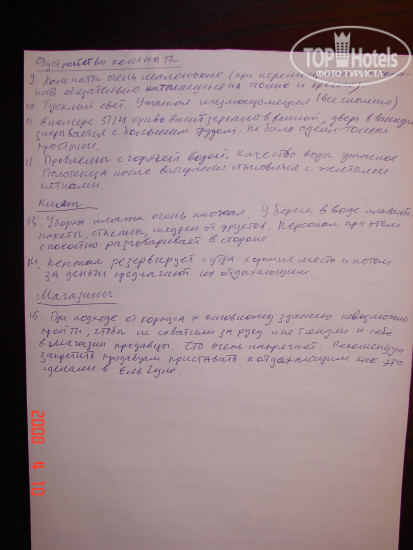 TOP Hotels
ФОТО ТУРИСТА
Обустройство комнаты
9. Комнаты очень маленькие (при перемещении
обязательно натыкаешься на столик и кресло)
10. Тусклый свет. Ужасная шумоизоляция (все слышно)
11. В номере 5124 криво висит зеркало в ванной, дверь в ванную
закрывается с большим трудом. Не было одеял-только
простыни.
12. Проблемы с горячей водой. Качество воды ужасное.
Полотенца после вытирания становятся с желтыми
пятнами.
Пляж
13. Уборка пляжа очень плохая. У берега в воде плавают
пакеты, стаканы, шкурки от фруктов. Персонал при этом
спокойно разговаривает в стороне
14. Персонал резервирует с утра хорошие места и потом
за деньги предлагают их отдыхающим.
Магазины
15. При подходе от корпуса к основному зданию невозможно
пройти, чтобы не схватили за руку и не тянули к себе
в магазин продавцы. Это очень напрягает. Рекомендую
запретить продавцам приставать к отдыхающим как это
сделали в Эль Гуне.
2008 4 10